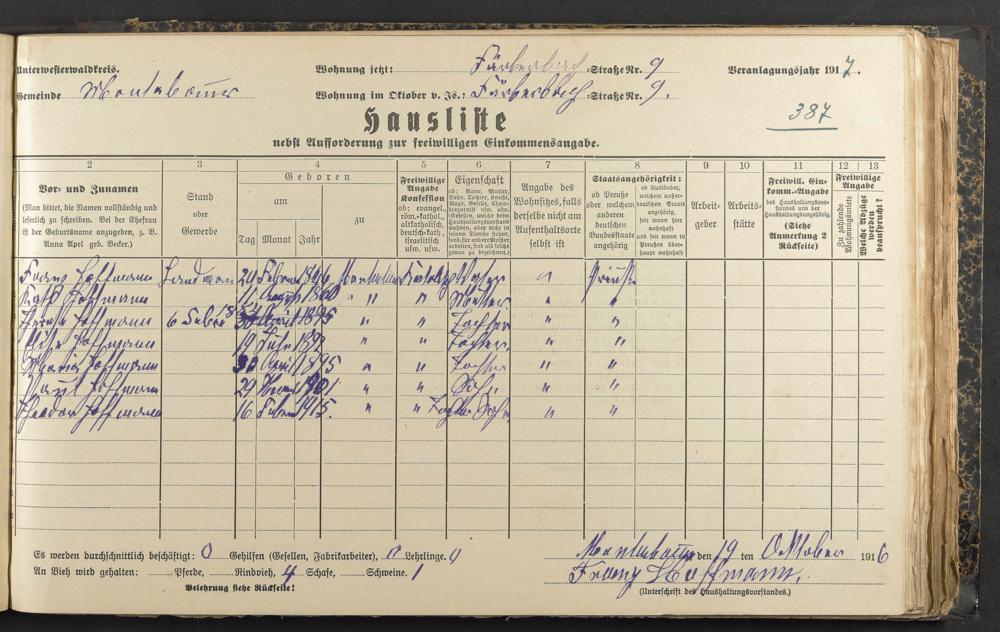 Unterwesterwaldkreis. Wohnung jetzt: Färberbach Straße Nr. 9 Veranlagungsjahr 1917.
Gemeinde Montabaur Wohnung im Oktober v. Js.: Färberbach Straße Nr. 9.
387
Hausliste
nebst Aufforderung zur freiwilligen Einkommensangabe.
2 3 4 5 6 7 8 9 10 11 12 13
Vor- und Zunamen
(Man bittet, die Namen vollständig und
leserlich zu schreiben. Bei der Ehefrau
ist der Geburtsname anzugeben, z. B.
Anna Apel geb. Becker.)
Stand
oder
Gewerbe
Geboren
am
zu
Tag Monat Jahr
Freiwillige
Angabe
Konfession
ob: evangel.,
röm.-kathol.,
altkatholisch,
deutsch-kath.,
israelitisch
usw. usw.
Eigenschaft
ob: Vater, Mutter,
Sohn, Tochter, Knecht,
Magd, Geselle,
Angabe des
Wohnsitzes, falls
derselbe nicht am
Aufenthaltsorte
selbst ist
Staatsangehörigkeit:
ob Preuße
oder welchem
anderen
deutschen
Bundesstaate
angehörig
ob Ausländer,
welchem außer-
deutschen Staate
angehörig,
seit wann hier
wohnhaft
und seit wann in
Preußen über-
haupt wohnhaft
Arbeit-
geber
Arbeits-
stätte
Freiwill. Ein-
komm.-Angabe
des Haushaltungsvor-
standes und der
Haushaltungsangehörig.
(Siehe
Anmerkung 2
Rückseite)
Freiwillige
Angabe
Zu zahlende
Wohnungsmiete
Welche Abzüge
werden
beansprucht?
Franz Hoffmann Landmann 24 Februar 1846 Montabaur Katolisch Vater " Preuße
Kath Hoffmann 11 August 1860 " " " Mutter " "
Therese Hoffmann 6 Febr 18 April 1895 " " Tochter " "
Hoffmann 19 Juli 1892 " " Tochter. " "
Maria Hoffmann 30 April 1895 " " Tochter " "
Paul Hoffmann 29 1901 " " Sohn " "
Theodor Hoffmann 16 Febru 1915 " " Sohn " "
Es werden durchschnittlich beschäftigt: 0 Gehilfen (Gesellen, Fabrikarbeiter), 0 Lehrlinge. 0
An Vieh wird gehalten: Pferde, Rindvieh, 4 Schafe, Schweine. 1
Belehrung siehe Rückseite!
Montabaur den 19 ten Oktober 1916
Franz Hoffmann.
(Unterschrift des Haushaltungsvorstandes.)